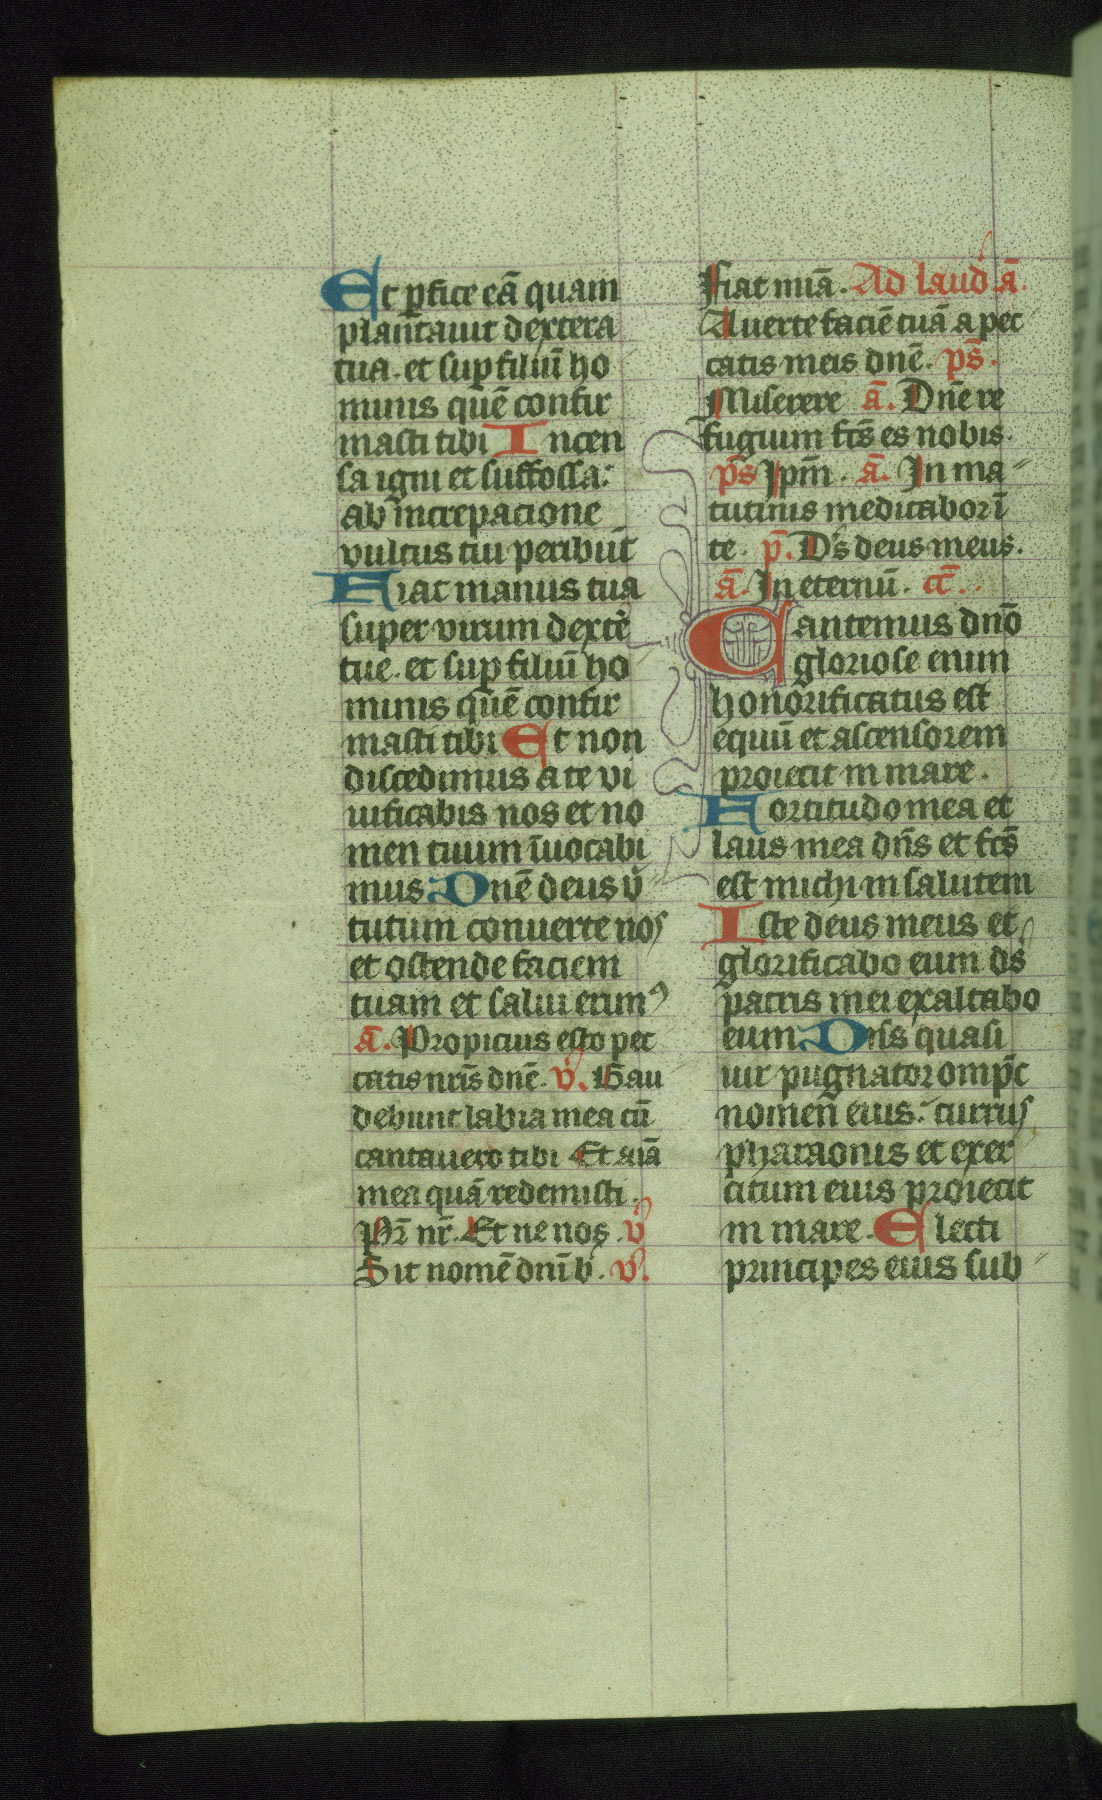 Et ꝑfice eā quam
plantauit dextera
tua. et suꝑ filiū ho
minis quē confir
masti tibi Incen
sa igni et suffossa:
ab increpacione
vultus tui peribūt
Fiat manus tua
super virum dexte
tue. et suꝑ filiū ho
minis quē confir
masti tibi Et non
discedimus a te vi
uificabis nos et no
men tuum īuocabi
mus Dnē deus v
tutum conuerte nos
et ostende faciem
tuam et salui erimꝰ
ā. Propicius esto pec
catis nrīs dnē. v. Gau
debunt labia mea cū
cantauero tibi Et aīa
mea quā redemisti.
Pr̄ nr̄. Et ne nos. v
Sit nomē dnī b. v.
Fiat mīa. Ad laud ā.
Auerte faciē tuā a pec
catis meis dnē. ps̄.
Miserere ā. Dnē re
fugium fc̄s es nobis.
ps̄ Ipm̄. ā. In ma
tutinis meditabor ī
te. p̄. Ds deus meus.
ā. In eternū. cc̄.
Cantemus dnō
gloriose enim
honorificatus est
equū et ascensorem
proiecit in mare.
Fortitudo mea et
laus mea dn̄s et fc̄s
est michi in salutem
Iste deus meus et
glorificabo eum ds
patris mei exaltabo
eum Dns quasi
uir pugnator omp̄c
nomen eius. currus
pharaonis et exer
citum eius proiecit
in mare. Electi
principes eius sub